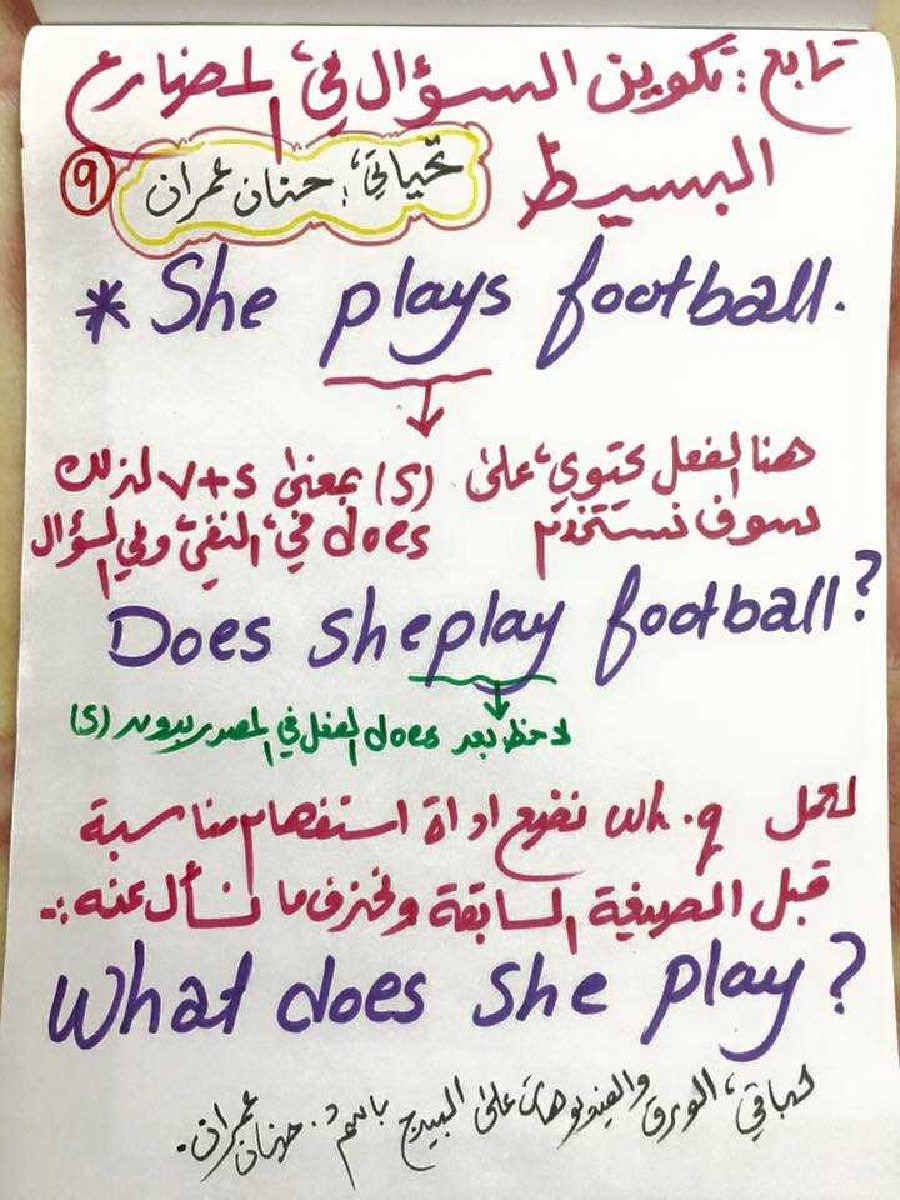 تابع : تكوين السؤال في المضارع
البسيط
تحياتي : حنان عمران
9
* She plays football.
هنا الفعل يحتوي على (s) بمعنى v+s لذلك
سوف نستخدم does في النفي وفي السؤال
Does she play football?
لاحظ بعد does الفعل في المصدر بدون (s)
لعمل wh.q نضع اداة استفهام مناسبة
قبل الصيغة السابقة ونحذف ما نسأل عنه :-
What does she play?
باقي الورق والفيديوهات على البيدج باسم : حنان عمران.